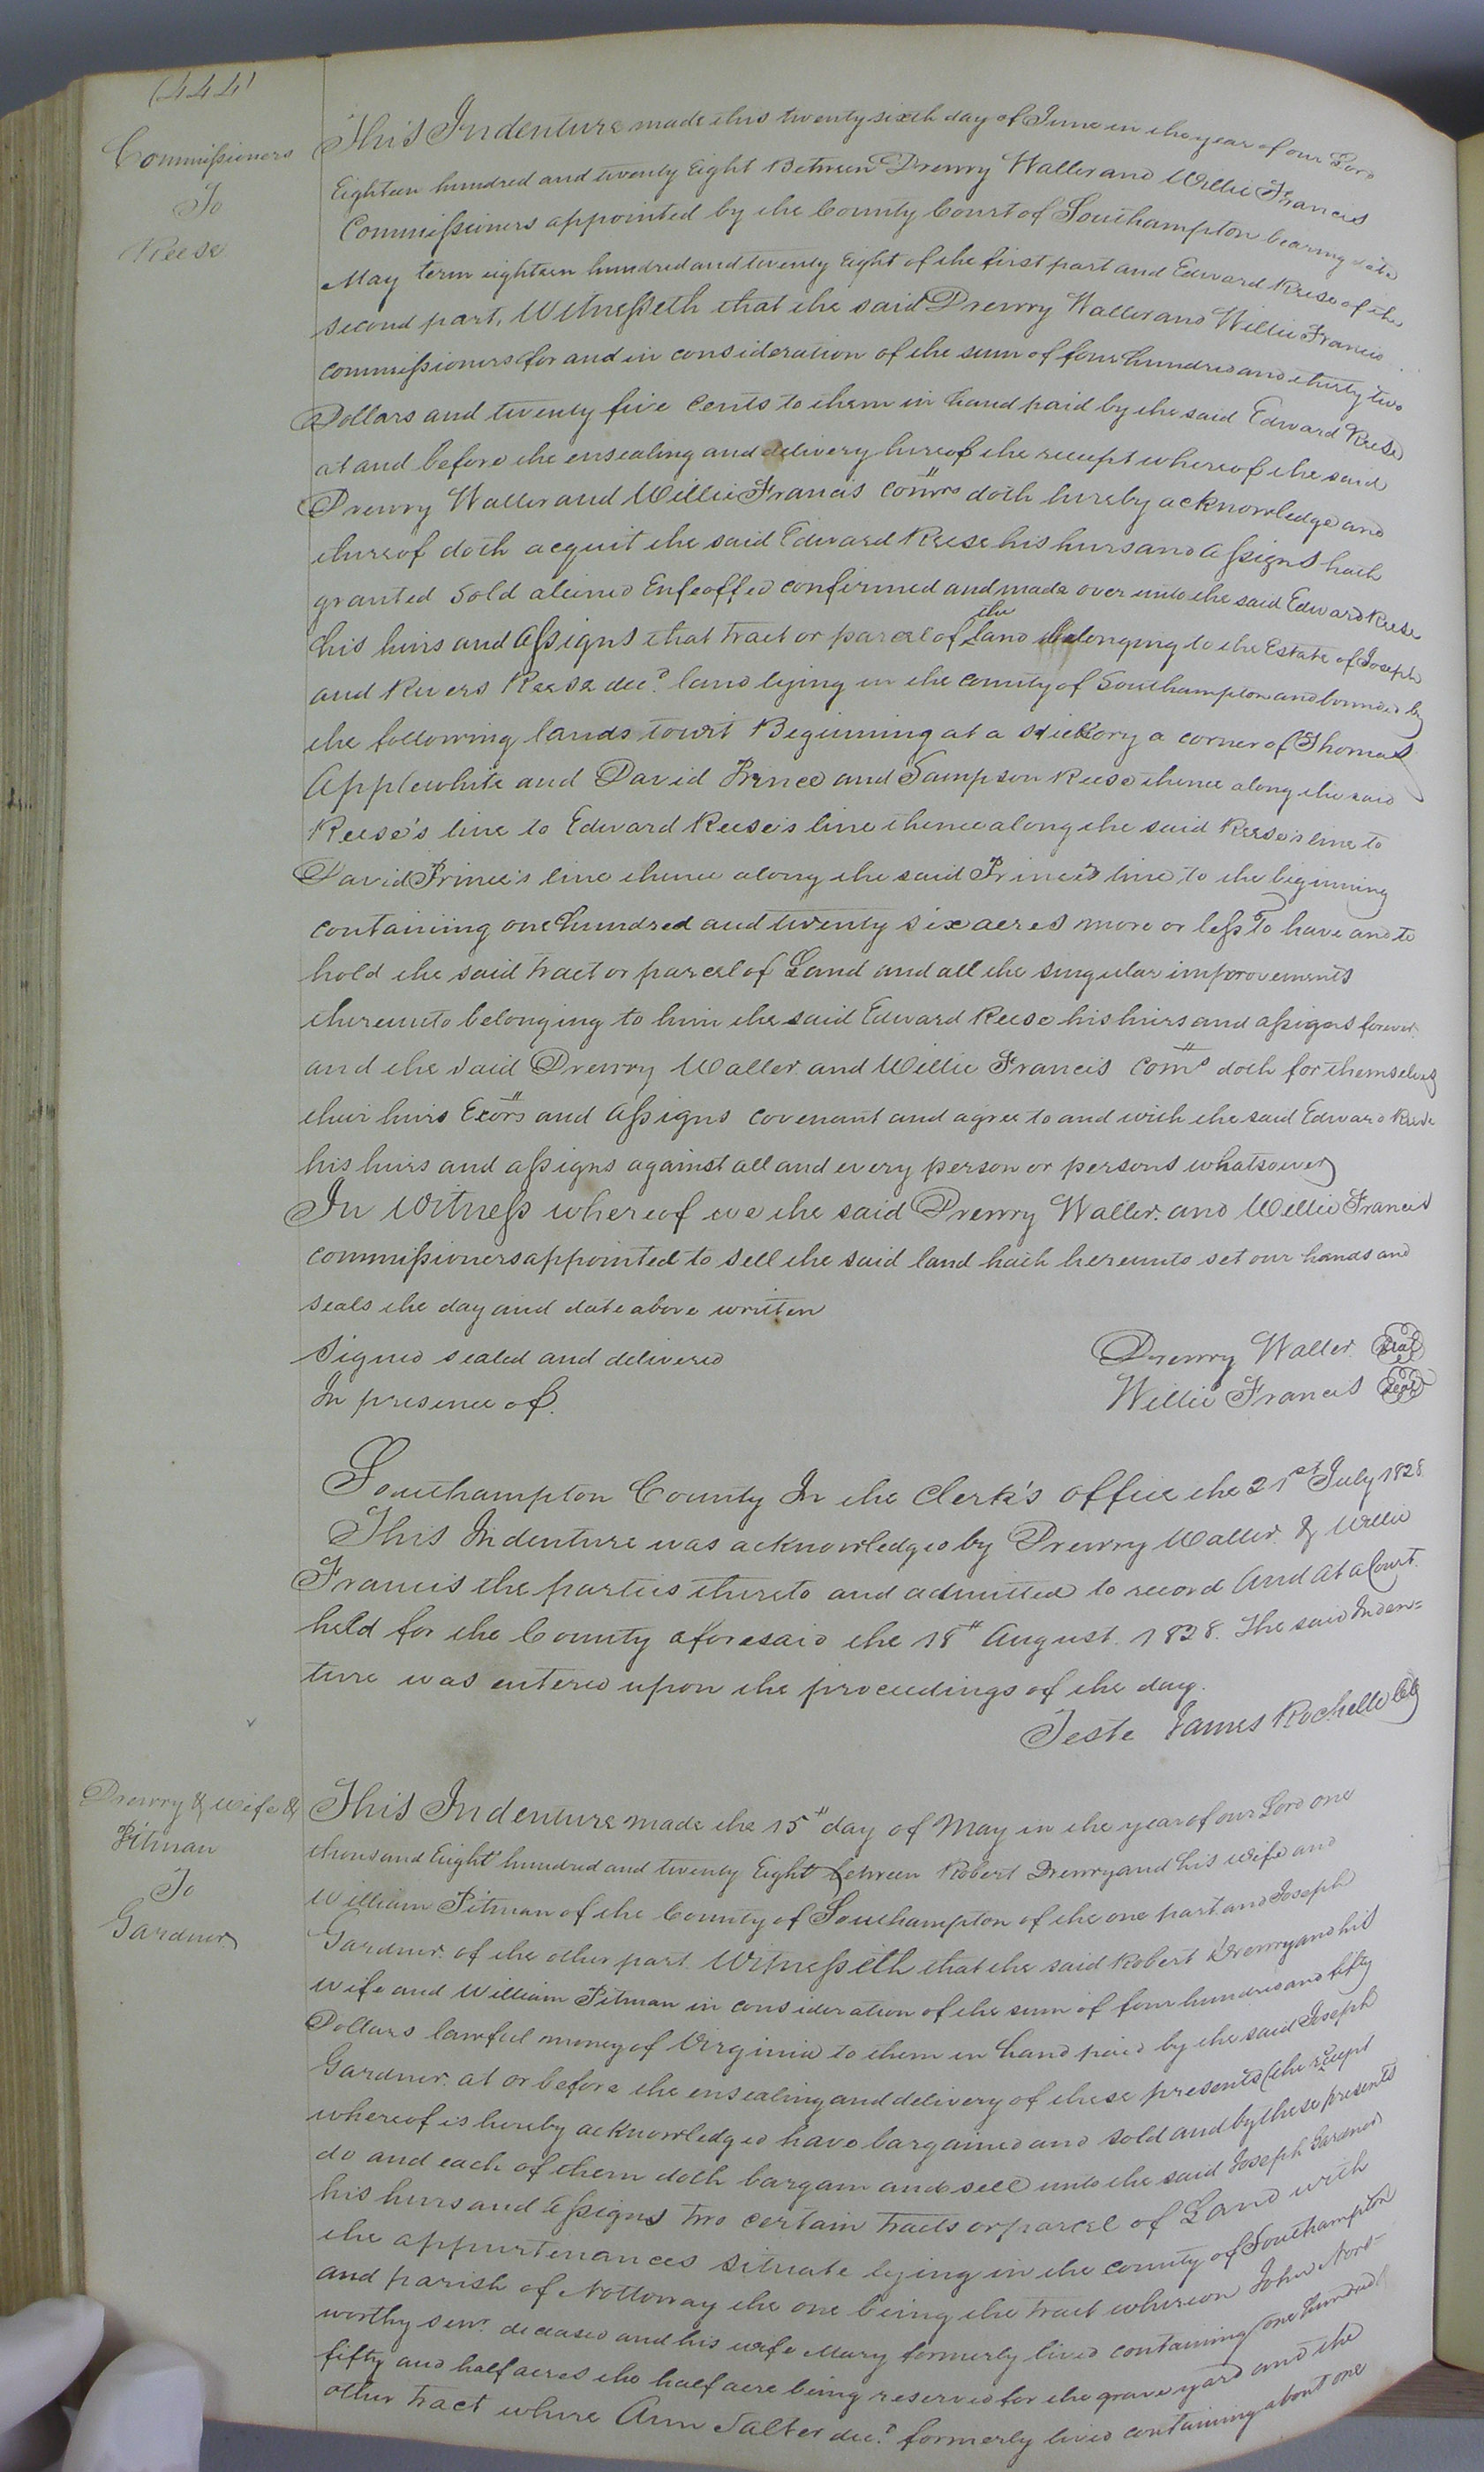 (444)
Commissioners
To
Reese
This Indenture made this twenty sixth day of June in the year of our Lord
Eighteen hundred and twenty Eight Between Drewry Waller and Willie Francis
Commissioners appointed by the County Court of Southampton bearing date
May term eighteen hundred and twenty Eight of the first part and Edward Reese of the
second part, Witnesseth that the said Drewry Waller and Willie Francis
commissioners for and in consideration of the sum of four hundred and thirty two
Dollars and twenty five Cents to them in hand paid by the said Edward Reese
at and before the ensealing and delivery hereof the receipt whereof the said
Drewry Waller and Willie Francis Comrs doth hereby acknowledge and
thereof doth acquit the said Edward Reese his heirs and assigns hath
granted Sold aliened Enfeoffed confirmed and made over unto the said Edward Reese
his heirs and assigns that tract or parcel of the land belonging to the Estate of Joseph
and Rivers Reese decd. land lying in the county of Southampton and bounded by
the following lands towit Beginning at a Hickory a corner of Thomas
Applewhite and David Prince and Sampson Reese thence along the said
Reese's line to Edward Reese's line thence along the said Reese's line to
David Prince's line thence along the said Prince's line to the beginning
containing one hundred and twenty six acres more or less To have and to
hold the said tract or parcel of Land and all the singular improvements
thereunto belonging to him the said Edward Reese his heirs and assigns forever
and the said Drewry Waller and Willie Francis Coms doth for themselves
their heirs Exors and assigns covenant and agree to and with the said Edward Reese
his heirs and assigns against all and every person or persons whatsoever
In Witness whereof we the said Drewry Waller. and Willie Francis
commissioners appointed to sell the said land hath hereunto set our hands and
seals the day and date above written
Signed sealed and delivered
In presence of
Drewry Waller Seal
Willie Francis Seal
Southampton County In the Clerk's office the 21st July 1828.
This Indenture was acknowledged by Drewry Waller. & Willie
Francis the parties thereto and admitted to record And At a Court.
held for the County aforesaid the 18th August. 1828. The said Inden=
ture was entered upon the proceedings of the day.
Teste James Rochelle Clk
Drewry & wife &
Pitman
To
Gardner
This Indenture made the 15th day of May in the year of our Lord one
thousand Eight hundred and twenty Eight between Robert Drewry and his wife and
William Pitman of the County of Southampton of the one part and Joseph
Gardner. of the other part Witnesseth that the said Robert Drewry and his
wife and William Pitman in consideration of the sum of four hundred and fifty
Dollars lawful money of Virginia to them in hand paid by the said Joseph
Gardner. at or before the ensealing and delivery of these presents (the receipt
whereof is hereby acknowledged have bargained and sold and by these presents
do and each of them doth bargain and sell unto the said Joseph Gardner
his heirs and assigns two certain tracts or parcel of Land with
the appurtenances situate lying in the county of Southampton
and parish of Nottoway the one being the tract whereon John Nors=
worthy senr. deceased and his wife Mary formerly lived containing one hundred
fifty and half acres the half acre being reserved for the grave yard and the
other tract where Ann Salter decd. formerly lived containing about one